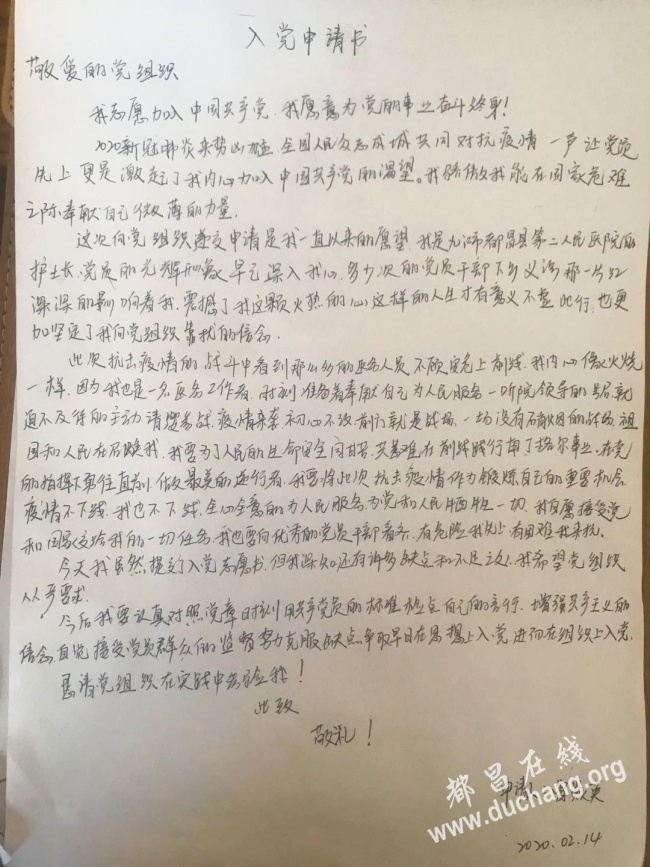 入党申请书
敬爱的党组织
我志愿加入中国共产党,我愿意为党的事业奋斗终身!
2020新冠肺炎来势凶猛 全国人民众志成城共同对抗疫情 一声让党员
先上 更是激起了我内心加入中国共产党的渴望。我骄傲我能在国家危难
之际奉献自己微薄的力量.
这次向党组织递交申请是我一直以来的愿望,我是九江市都昌县第二人民医院的
护士长,党员的光辉形象早已深入我心,多少次的党员干部下乡义诊那一片红
深深的影响着我,震撼了我这颗火热的心 这样的人生才有意义不虚此行,也更
加坚定了我向党组织靠拢的信念.
此次抗击疫情的战斗中看到那么多的医务人员不顾安危上前线,我内心像火烧
一样,因为我也是一名医务工作者,时刻准备着奉献自己为人民服务一听院领导的号召就
迫不及待的主动请缨参战,疫情来袭 初心不改 前方就是战场,一场没有硝烟的战场,祖
国和人民在召唤我,我要为了人民的生命安全同甘苦,共患难在前线践行南丁格尔事业,在党
的指挥下勇往直前做最美的逆行者,我要将此次抗击疫情作为锻炼自己的重要机会
疫情不下线,我也不下线,全心全意的为人民服务为党和人民牺牲一切,我自愿接受党
和国家交给我的一切任务,我也要向优秀的党员干部看齐,有危险我先上 有困难我来扛.
今天我虽然提交了入党志愿书,但我深知还有许多缺点和不足之处,我希望党组织
从严要求.
今后我要认真对照党章时刻用共产党员的标准检点自己的言行,增强共产主义的
信念,自觉接受党员群众们的监督努力克服缺点,争取早日在思想上入党 进而在组织上入党.
恳请党组织在实战中考验我!
此致
敬礼!
申请人
2020.02.14
都昌在线
www.duchang.org